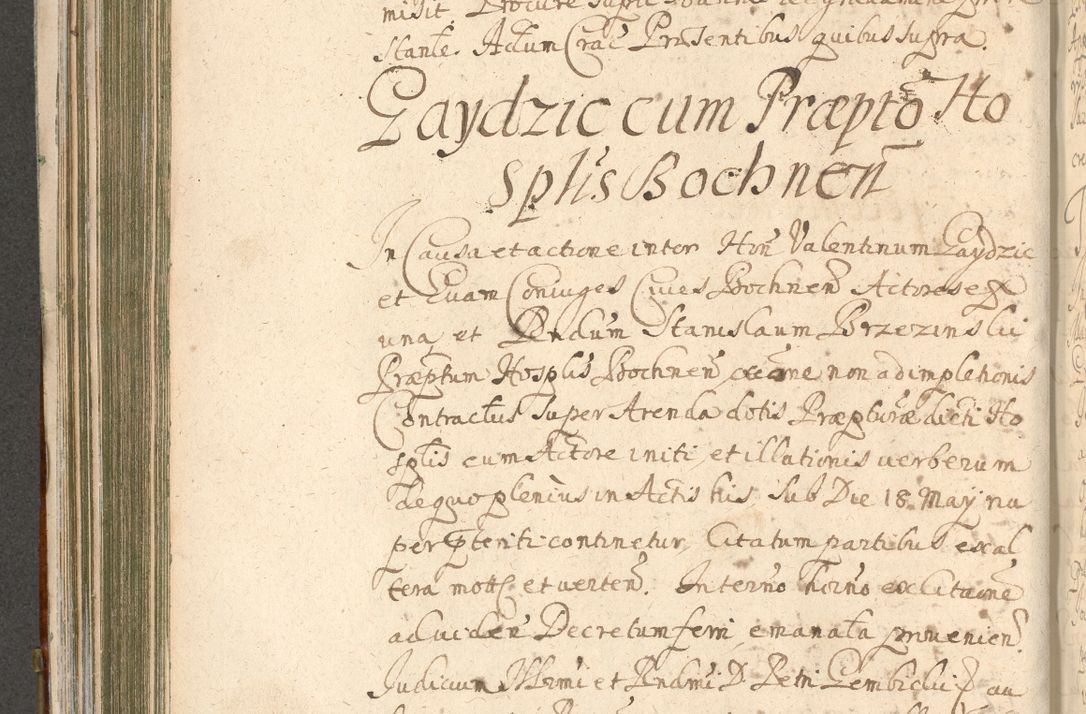 misit. Procure supra
stante. Actum Crac̄ Præsentibus quibus supra.
Gaydzic cum Præptō Ho
splis Bochnen̄
In Causa et actione inter Hon̄ Valentinum Gaydzic
et Evam Coniuges Cives Bochnen̄ Actores ex
una, et Rndum Stanislaum Brzezinski
Præptum Hosplis Bochnen̄ non adimpletionis
Contractus super Arenda dotis Præpturæ dicti Ho
splis cum Actore initi, et illationis verberum
de quo plenius in Actis his sub Die 18 May nu
per pteriti continetur, Citatum partibus ex al
tera mott et verten̄. In termo horno ex Citaōne
ad viden̄ Decretum ferri, emanata provenien̄.
Judicium Illrmi et Rndmi D. Petri Gembicki au